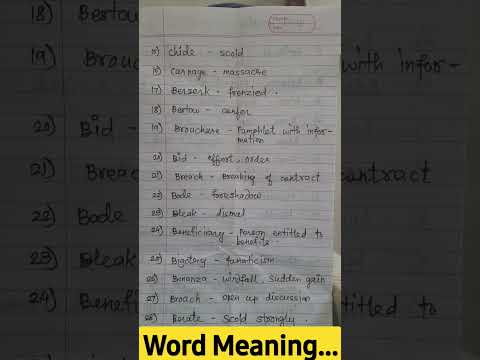 18) Bestow
19) Brouch
20) Bid -
21) Breac
22) Bode
23) Bleak
24) Benefici
15) Chide - scold
16) Carnage - massacre
17) Berserk - frenzied .
18) Bestow - confer
19) Brouchere - Pamphlet with infor-
mation
20) Bid - effort, order
21) Breach - Breaking of contract
22) Bode - foreshadow
23) Bleak - dismal
24) Beneficiary - Person entitled to
benefits
25) Bigotery - fanaticism
26) Bonanza - windfall, sudden gain
27) Broach - open up discussion
28) Berate - Scold strongly .
with infor-
contract
entitled to
Word Meaning...